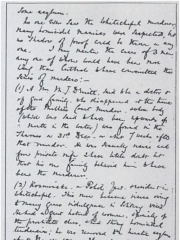 some asylum.
No one ever saw the Whitechapel murderer,
many homicidal maniacs were suspected, but
no shadow of proof could be thrown on any
one. I may mention the cases of 3 men,
any one of whom would have been more
likely than Cutbush to have committed this
series of murders:—
(1) A Mr M. J. Druitt, said to be a doctor &
of good family, who disappeared at the time
of the Miller's Court murder, & whose body
(which was said to have been upwards of
a month in the water) was found in the
Thames on 31st Decr. — or about 7 weeks after
that murder. He was sexually insane and
from private info I have little doubt but
that his own family believed him to have
been the murderer.
(2) Kosminski, a Polish Jew, & resident in
Whitechapel. This man became insane owing
to many years indulgence in solitary vices.
He had a great hatred of women, specially of
the prostitute class, & had strong homicidal
tendencies; he was removed to a lunatic asylum